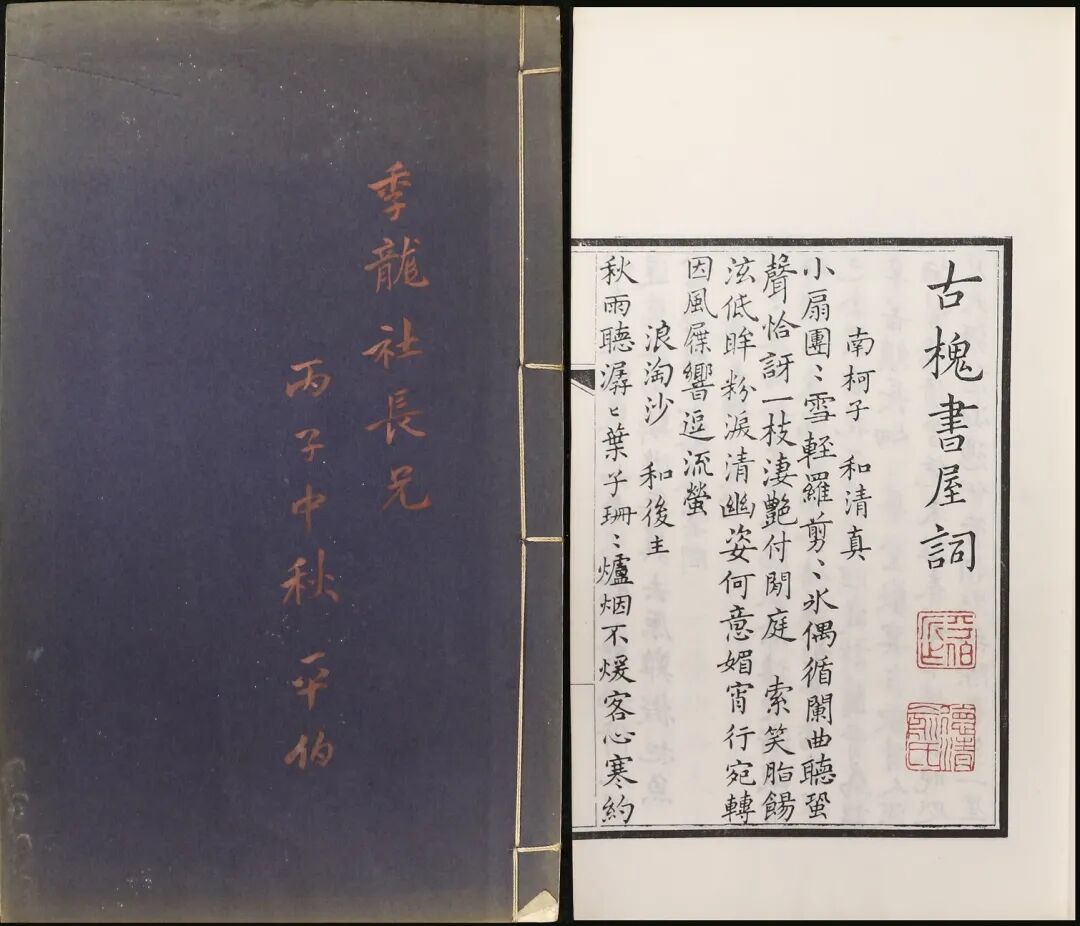 季龍社長兄
丙子中秋 平伯
古槐書屋詞
南柯子 和清真
小扇團〻雪輕羅剪〻氷偶循闌曲聽蛩
聲恰訝一枝淒艷付閒庭 索笑脂餳
泫低眸粉淚清幽姿何意媚宵行宛轉
因風屧響逗流螢
浪淘沙 和後主
秋雨聽潺〻葉子珊〻爐烟不煖客心寒約
德清俞氏